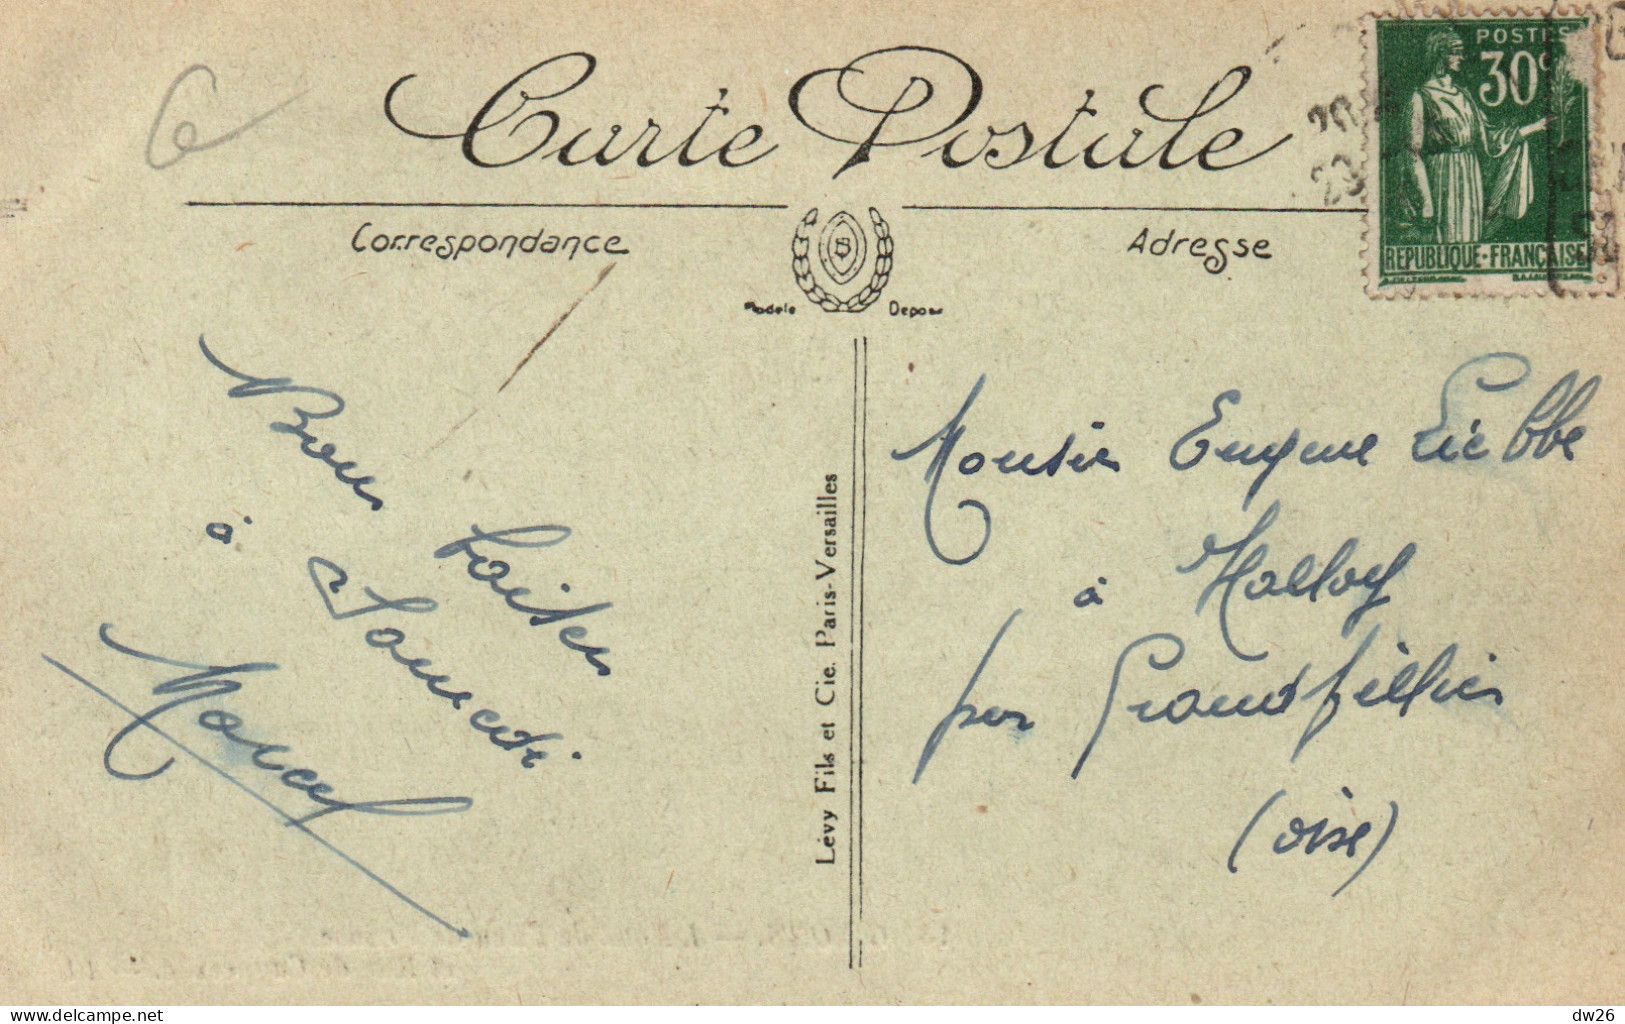 Carte Postale
POSTES
30c
REPUBLIQUE-FRANÇAISE
Correspondance
Adresse
Modèle Déposé
Bons baisers
à Samedi
Marcel
Lévy Fils et Cie. Paris-Versailles
Monsieur Eugène
à Halloy
par Grandvilliers
(Oise)
delcampe.net
dw26